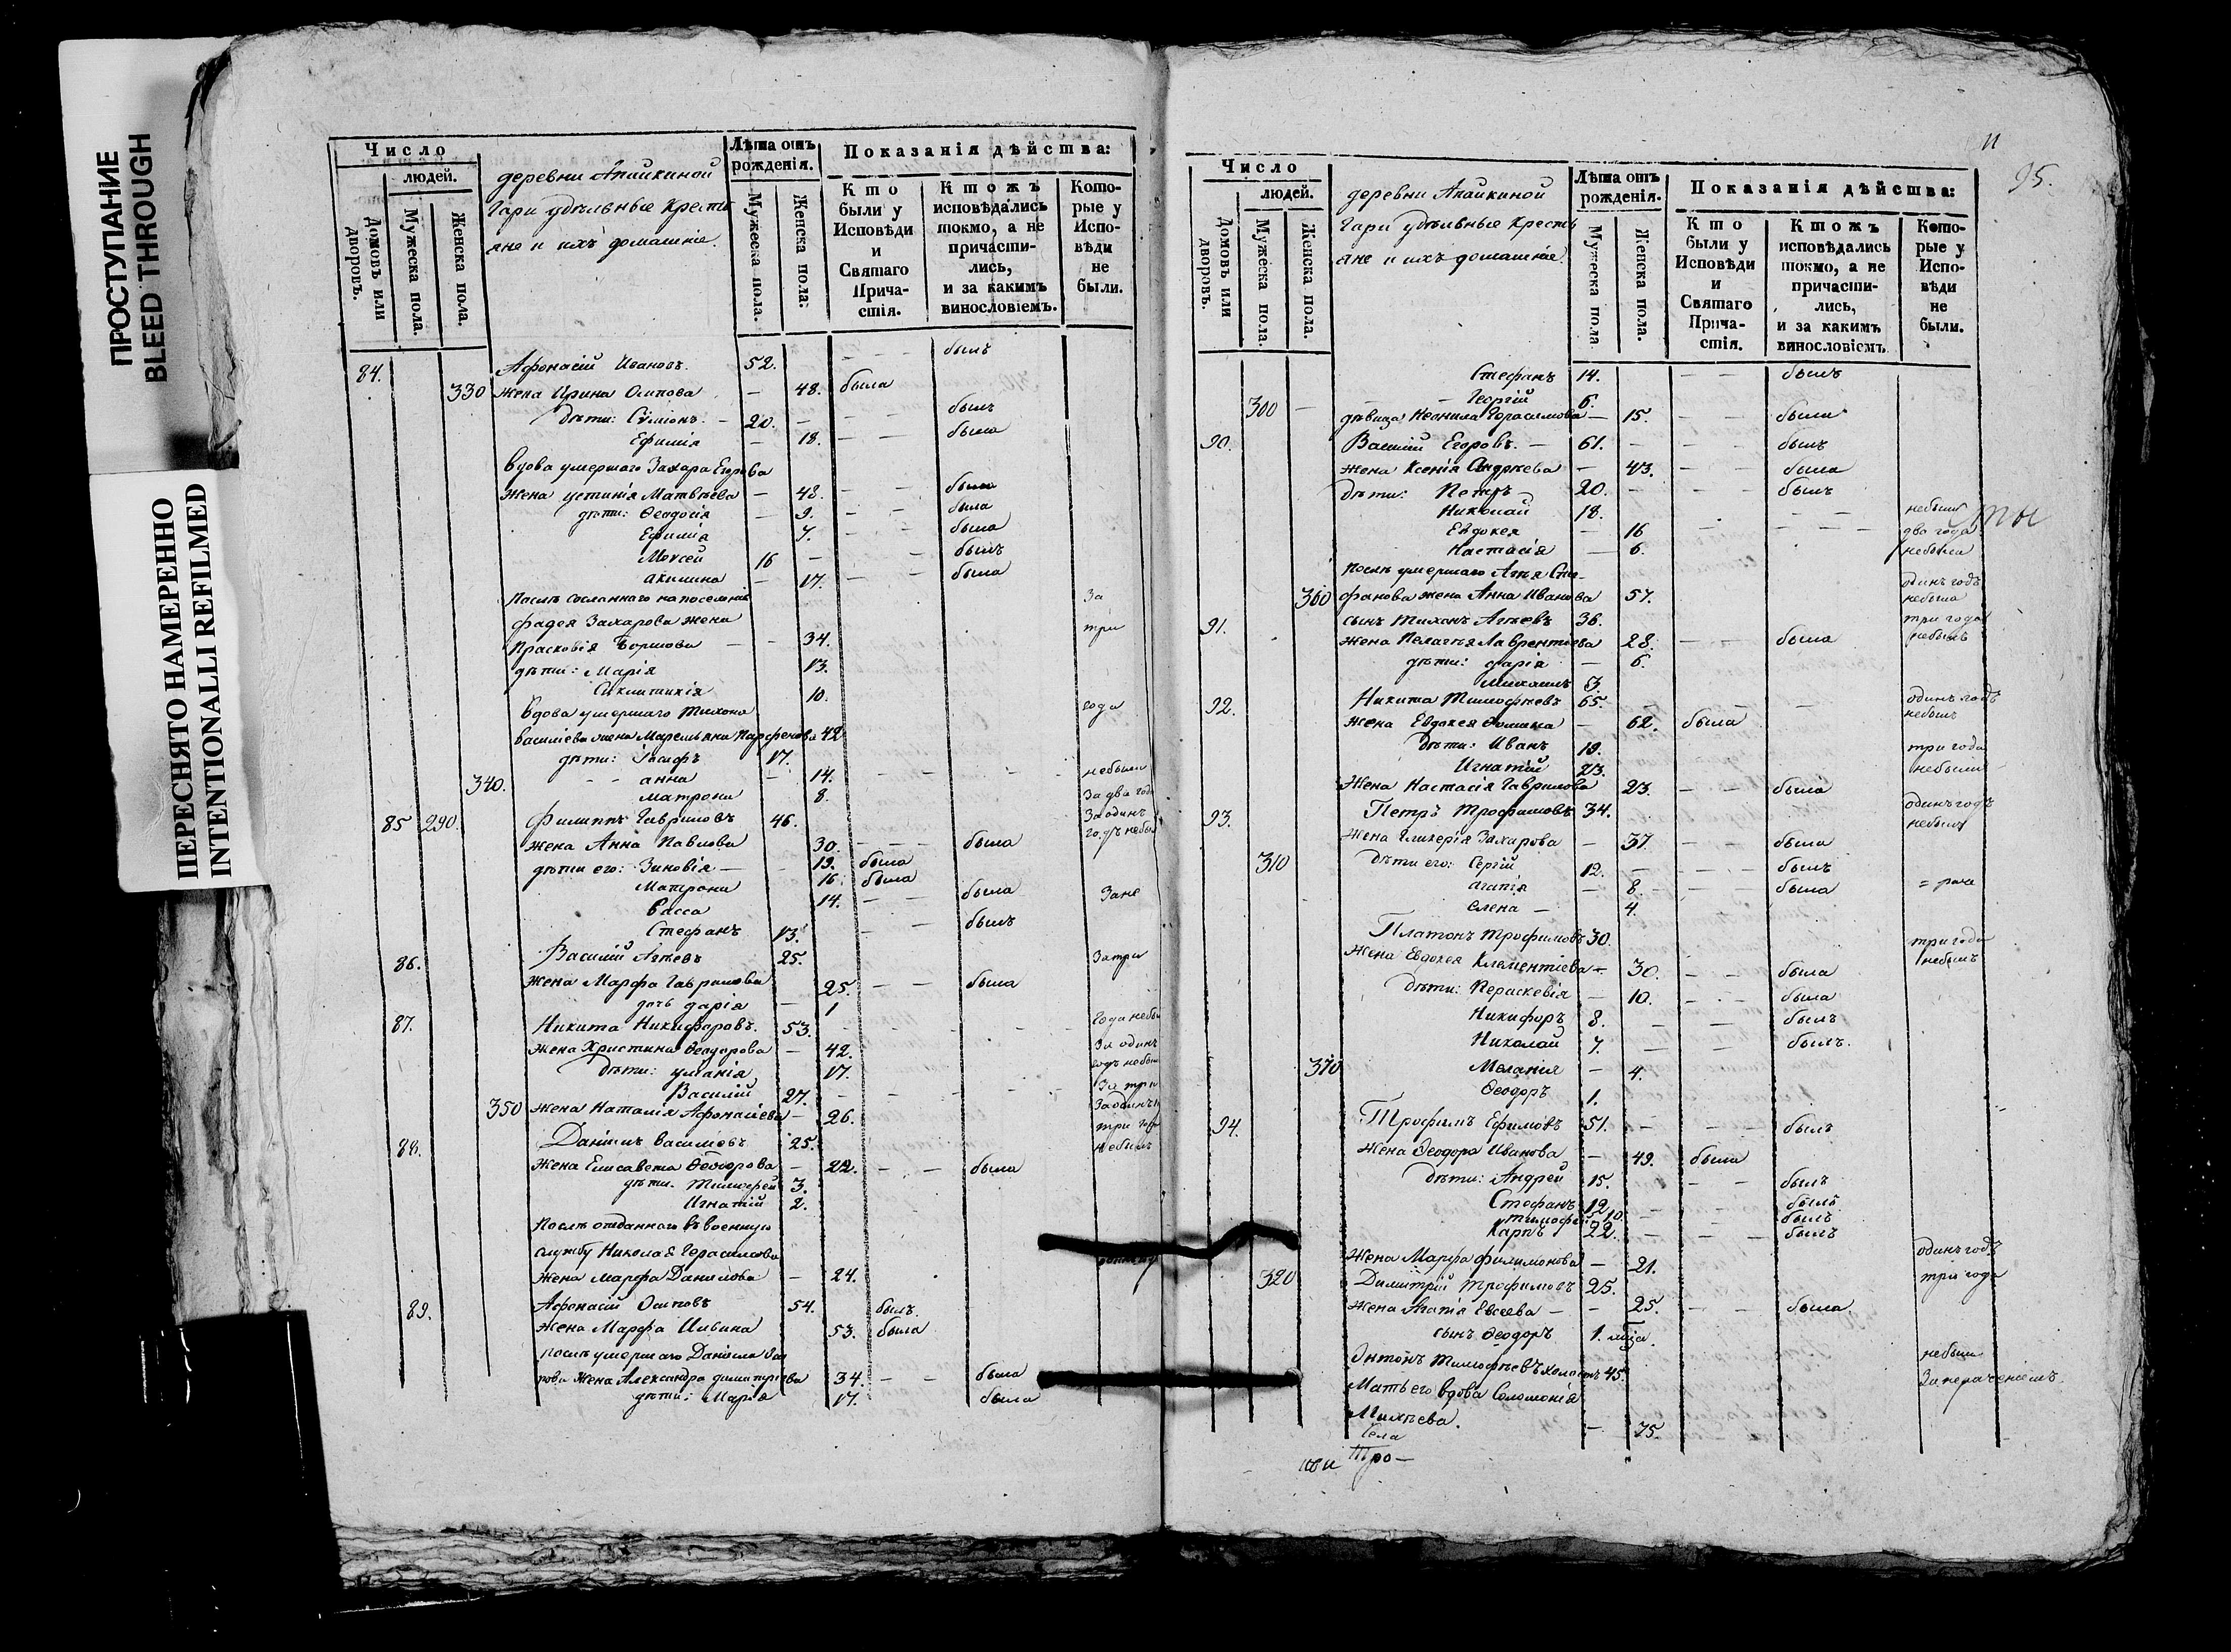 ПРОСТУПАНИЕ
BLEED THROUGH
ПЕРЕСНЯТО НАМЕРЕННО
INTENTIONALLI REFILMED
Число
людей.
Домовъ или дворовъ.
Мужеска пола.
Женска пола.
деревни Апайкиной
Гари удѣльные кресть
яне и ихъ домашніе.
Лѣта отъ рожденія.
Мужеска пола.
Женска пола.
Показанія дѣйства:
Кто были у Исповѣди и Святаго Прича-стія.
Ктожъ исповѣдались токмо, а не причасти-лись, и за какимъ винословіемъ.
Кото-рые у Испо-вѣди не были.
84. Афонасій Ивановъ. 52. — — былъ
330 жена Ирина Осипова — 48. была
дѣти: Симіонъ. — 20. — былъ
Ефимія — 18. — — была
вдова умершаго Захара Егорова
жена устинія Матвѣева — 48. — — была
дѣти: Ѳеодосія — 9. — — была
Ефимія 7. — — была
Моксей 16 — — былъ
акилина — 17. — — была
послѣ сосланнаго на поселеніе За
фадея Захарова жена три
Прасковія — — 34.
дѣти: Марія 13.
10.
вдова умершаго Тихона года
Василіева жена Парфенова 42
дѣти: Іосифъ 17.
340. анна — 14. — — — небыли
Матрона 8. За два года
85 290. Филиппъ Гавриловъ 46. За одинъ
жена Анна Павлова 30. — — была годъ небылъ
дѣти его: Зиновія — 19. была
Матрона 16. была
Васса 14. — — была Зане
Стефанъ 13. — — былъ
86. Василій Агѣевъ 25. За три
жена Марфа Гаврилова 25. — — была
дочь дарія — 1
87. Никита Никифоровъ. 53. — — — года небы
жена Христина Ѳеодорова — 42. За одинъ
дѣти: уліанія 17. годъ небыли
Василій 27. — — — За три
350 жена Наталія Афонасіева — 26. За одинъ
88. Даніилъ Василіевъ 25. три года небылъ
жена Елисавета Ѳеодорова — 22. — — была
дѣти. Тимофей 3.
Игнатій 2.
послѣ отданнаго въ военную
службу Николая Герасимова
жена марфа Данилова — 24.
89. Афонасій Осиповъ 54. былъ
жена Марфа Ильина 53. была
послѣ умершаго Даніила
жена Александра димитріева 34. — — была
дѣти: Марія 17. была
11
95.
Число
людей.
Домовъ или дворовъ.
Мужеска пола.
Женска пола.
деревни Апайкиной
Гари удѣльные кресть
яне и ихъ домашніе.
Лѣта отъ рожденія.
Мужеска пола.
Женска пола.
Показанія дѣйства:
Кто были у Исповѣди и Святаго Прича-стія.
Ктожъ исповѣдались токмо, а не причасти-лись, и за какимъ винословіемъ
Кото-рые у Испо-вѣди не были.
Стефанъ 14. — — былъ
300 — Георгій 6.
дѣвица Неонила Герасимова — 15. — — была
90. Василій Егоровъ. — 61. — — былъ
жена Ксенія Андреева — 43. — — была
дѣти: Петръ 20. — — былъ
Николай 18. — — небылъ
Евдокея — 16 — — — два года
Настасія — 6. небыла
послѣ умершаго Агѣя Сте- одинъ годъ
360 фанова жена Анна Иванова 57. небыла
91. сынъ Тихонъ Агѣевъ 36. три года
жена Пелагѣя Лаврентіева 28. — — была небылъ
дѣти: дарія — 6.
Михаилъ 3.
92. Никита Тимофѣевъ 65. — — — одинъ годъ
жена Евдокея Ѳомина — 62. была небылъ
дѣти: Иванъ 19. три года
Игнатій 23. небыли
жена Настасія Гаврилова 23. — — была
93. Петръ Трофимовъ 34. одинъ годъ небылъ
жена Гликерія Захарова — 37. — — была
310 дѣти его: Сергій 12. — — — былъ
агапія — 8. — — была
Елена — 4.
Платонъ Трофимовъ 30. три года
жена Евдокея Клементіева — 30. — — была небылъ
дѣти: Пераскевія — 10. — — была
Никифоръ 8. — — былъ
Николай 7. — — былъ.
370 Меланія — 4.
Ѳеодоръ 1.
94. Трофимъ Ефимовъ 51. — — — былъ
жена Ѳеодора Иванова — 49. была
дѣти: Андрей 15. — — — былъ
Стефанъ 12 — — былъ
тимофей 10. — — былъ
Карпъ 22. — — — былъ
жена Марфа Филимонова — 21. одинъ годъ
320 Димитрій Трофимовъ 25. три года
жена Агапія Евсеева — — 25. — — была.
сынъ Ѳеодоръ 1.
Антонъ Тимофѣевъ холостъ 45. небыли
Мать его вдова Соломонія
Михѣева. — 75.
Села
Тро—